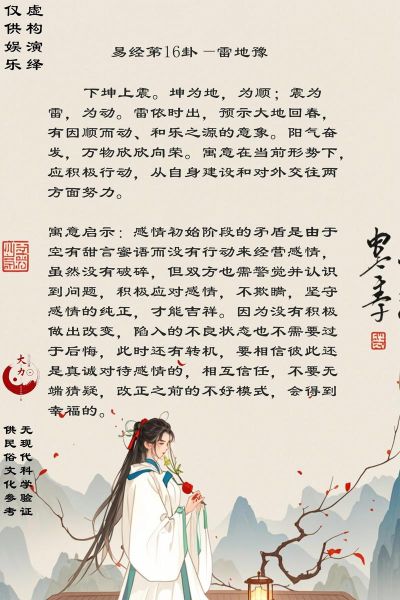 虚构演绎
仅供娱乐
易经第16卦－雷地豫
下坤上震。坤为地，为顺；震为
雷，为动。雷依时出，预示大地回春，
有因顺而动、和乐之源的意象。阳气奋
发，万物欣欣向荣。寓意在当前形势下，
应积极行动，从自身建设和对外交往两
方面努力。
寓意启示：感情初始阶段的矛盾是由于
空有甜言蜜语而没有行动来经营感情，
虽然没有破碎，但双方也需警觉并认识
到问题，积极应对感情，不欺瞒，坚守
感情的纯正，才能吉祥。因为没有积极
做出改变，陷入的不良状态也不需要过
于后悔，此时还有转机，要相信彼此还
是真诚对待感情的，相互信任，不要无
端猜疑，改正之前的不好模式，会得到
幸福的。
大力
无现代科学验证
供民俗文化参考